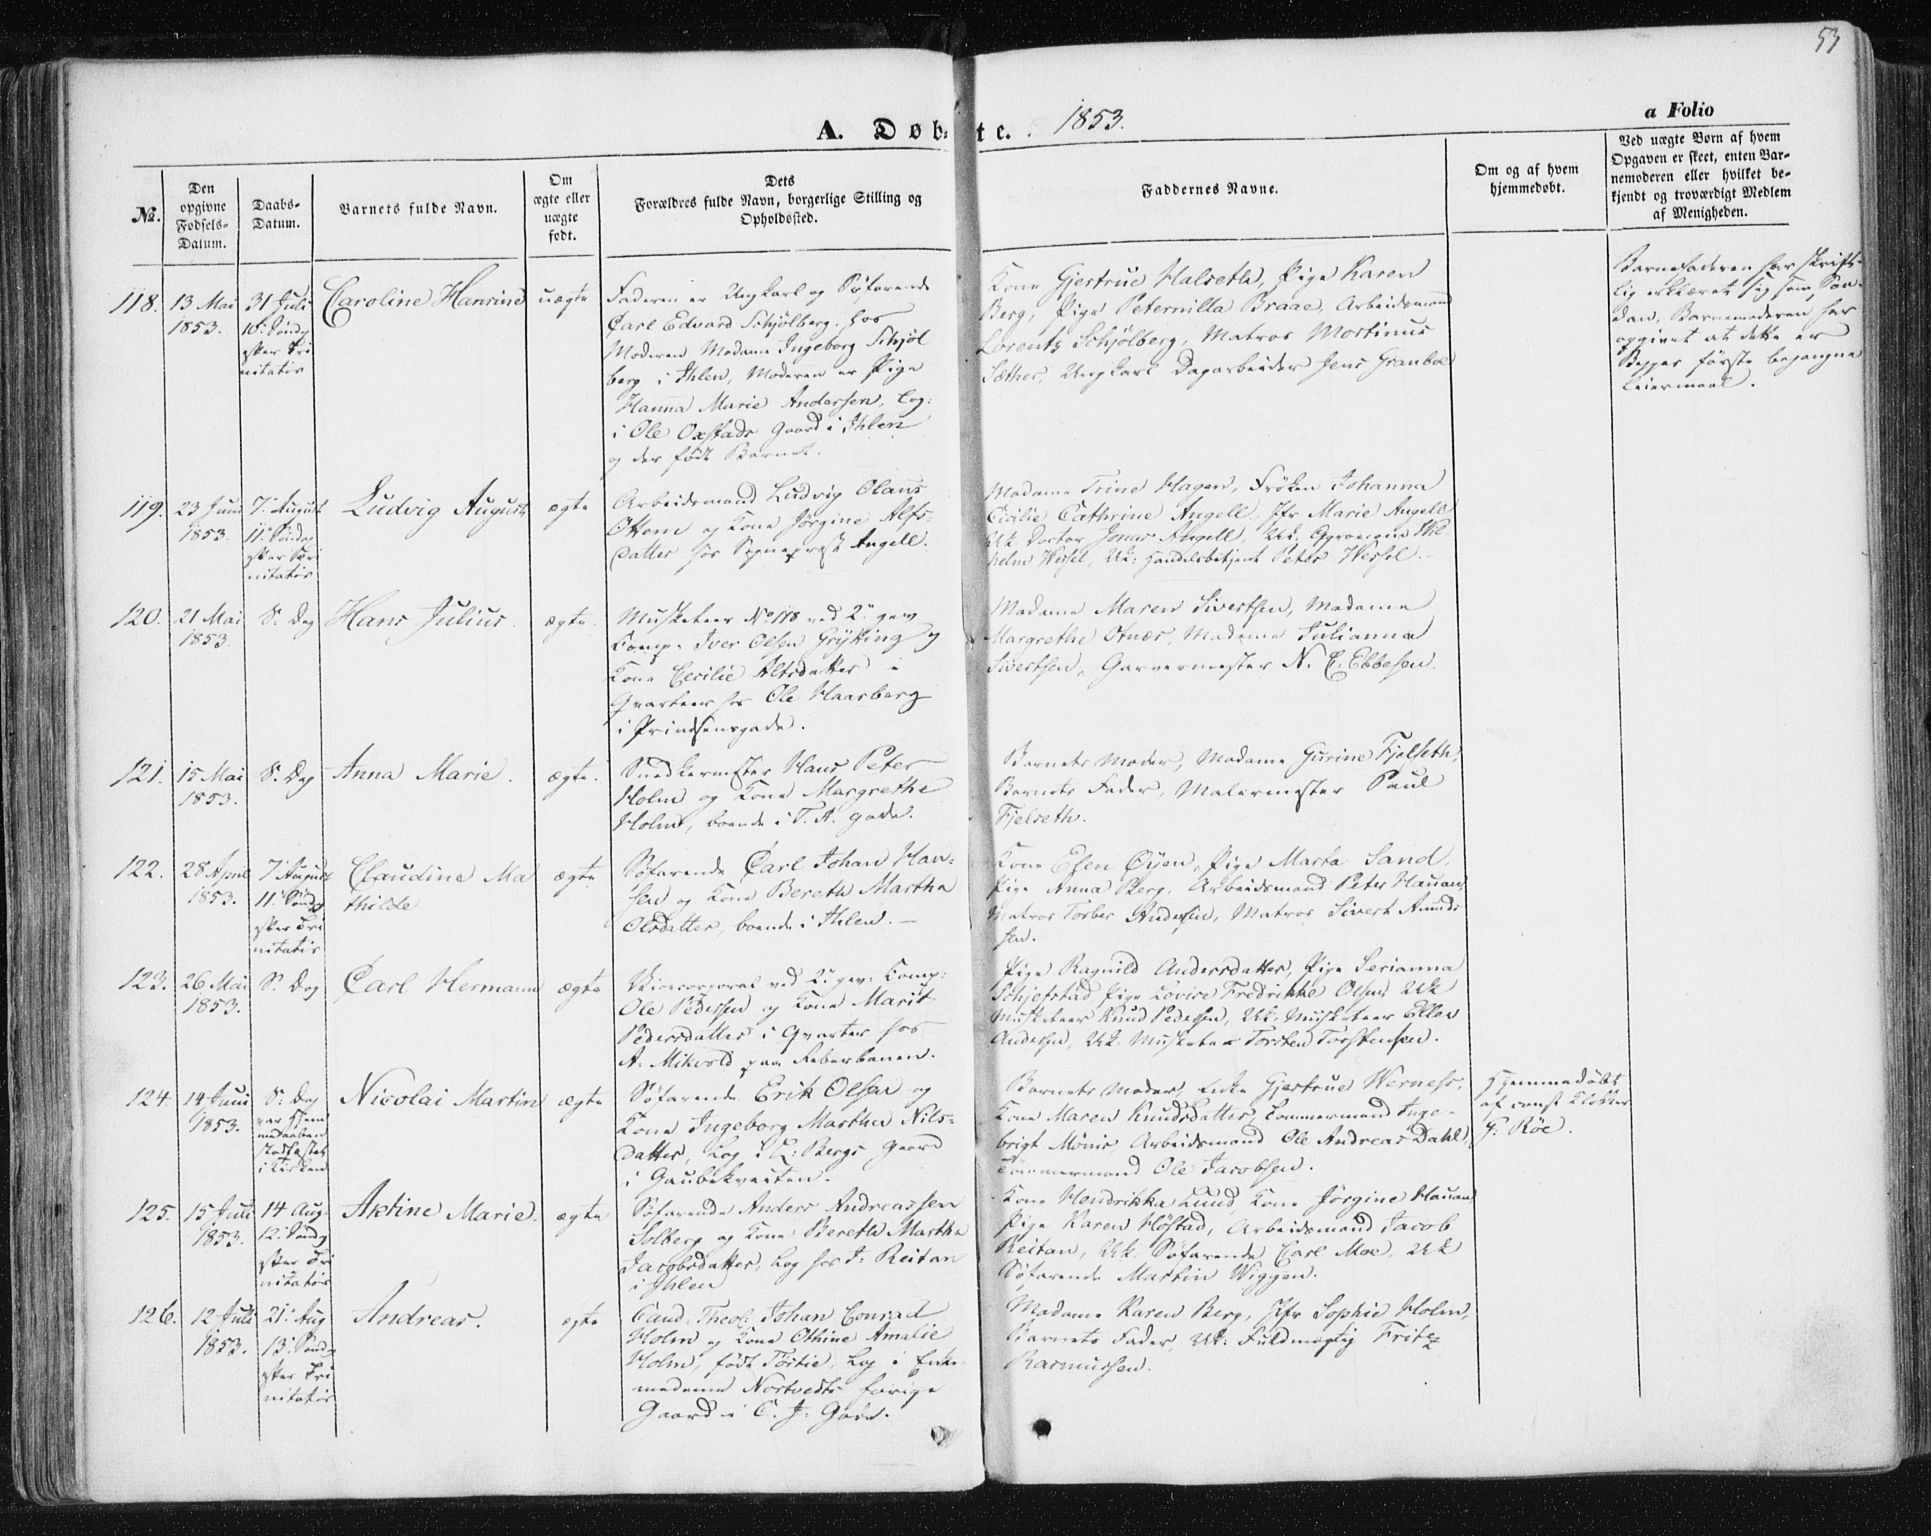 53
A. Døbte. 1853.
a Folio
№.
Den opgivne Fødsels-Datum.
Daabs-Datum.
Barnets fulde Navn.
Om ægte eller uægte født.
Dets Forældres fulde Navn, borgerlige Stilling og Opholdssted.
Faddernes Navne.
Om og af hvem hjemmedøbt.
Ved uægte Børn af hvem Opgaven er skeet, enten Barnemoderen eller hvilket bekjendt og troværdigt Medlem af Menigheden.
118.
13 Mai
1853.
31 Juli
10. Søndg
efter Tri
nitatis
Caroline Hansine
uægte
Faderen er Ungkarl og Søfarende
Carl Edvard Schjølberg hos
Moderen Madame Ingeborg Schjøl
berg i Ihlen, Moderen er Pige
Hanna Marie Andersen, log:
i Ole Oxstads Gaard i Ihlen
og der født Barnet.
Kone Gjertrue Halseth, Pige Karen
Berg, Pige Peternilla Braae, Arbeidsmand
Lorentz Schjølberg, Matros Mortinus
Sæther, Ungkarl Dagarbeider Jens Granboe
Barnefaderen har skrift-
lig erklæret sig som Saa-
dan. Barnemoderen har
opgivet at dette er
Begges første begangne
Leiermaal.
119.
23 Juni
1853.
7. August
11. Søndag
efter Tri
nitatis
Ludvig August
ægte
Arbeidsmand Ludvig Olaus
Ottem og Kone Jørgine Alfs-
datter hos Sognepræst Angell.
Madame Trine Hagen, Frøken Johanna
Cicilie Cathrine Angell, Jfr Marie Angell
Uk. Doctor Jonas Angell, Uk. Agronom Wil
helm Wessel, Uk: Handelsbetjent Peter Wessel.
120.
21 Mai
1853.
S. Dag
Hans Julius.
ægte.
Musketeer No 118 ved 2. gev
Comp. Iver Olsen Grytting og
Kone Cecilie Altsdatter i
Qvarteer hos Ole Haarberg
i Prindsensgade.
Madame Maren Sivertsen, Madame
Margrethe Otnæs, Madame Julianna
Sivertsen, Garvermester N. E. Ebbesen.
121.
15 Mai
1853.
S. Dag
Anna Marie.
ægte.
Snedkermester Hans Peter
Holm og Kone Margrethe
Holm, boende i T. A. gade.
Barnets Moder, Madame Gurine Fjelseth,
Barnets Fader, Malermester Paul
Fjelseth.
122.
28 April
1853.
7. August
11. Søndg
efter Tri
nitatis
Claudine Ma
thilde
ægte
Søfarende Carl Johan Han-
sen og Kone Bereth Martha
Olsdatter, boende i Ihlen. —
Kone Elen Øyen, Pige Marta Sand,
Pige Anna Berg, Arbeidsmand Peter Hauan,
Matros Torber Andersen, Matros Sivert Amunds
sen.
123.
26 Mai
1853.
S. Dag
Carl Hermann
ægte
Vicecorporal ved 2. gev. Comp:
Ole Pedersen og Kone Marit
Pedersdatter i Qvarter hos
A. Mikvold paa Reberbanen.
Pige Ragnild Andersdatter, Pige Serianna
Schjefstad Pige Lovise Fredrikke Olsen Uk
Musketeer Knud Pedersen, Uk. Musketeer Ellev
Andersen, Uk. Musketeer Torsten Torstensen.
124.
14 Juni
1853.
S. Dag
var Hjem
medaaben
stadfæstet
i Kirken
Nicolai Martin
ægte
Søfarende Erik Olsen og
Kone Ingeborg Martha Nils-
datter, Log i L. Bergs Gaard
i Gaubekveiten.
Barnets Moder, Enke Gjertrue Werness,
Kone Maren Knudsdatter, Tømmermand Inge-
brigt Mønis, Arbeidsmand Ole Andreas Dahl,
Tømmermand Ole Jacobsen.
Hjemmedøbt
af const Klokker
G. Røe.
125.
15 Juli
1853.
14 Aug
12. Søndg
efter Tri
nitatis
Aktine Marie.
ægte
Søfarende Anders Andreassen
Solberg og Kone Bereth Martha
Jacobsdatter, Log hos J. Reitan
i Ihlen
Kone Hendrikka Lund, Kone Jørgine Hauan
Pige Karen Høstad, Arbeidsmand Jacob
Reitan, Uk. Søfarende Carl Moe, Uk
Søfarende Martin Wiggen.
126.
12 Juli
1853.
21. Aug
13. Søndg
efter Tri
nitatis
Andreas.
ægte
Cand: Theol: Johan Conrad
Holm og Kone Othine Amalie
Holm, født Tørtie, Log i Enke-
madame Nortvedts forige
Gaard i C. J. Gade.
Madame Karen Berg, Jfr Sophie Holm,
Barnets Fader, Uk: Fuldmægtig Fritz
Rasmussen.